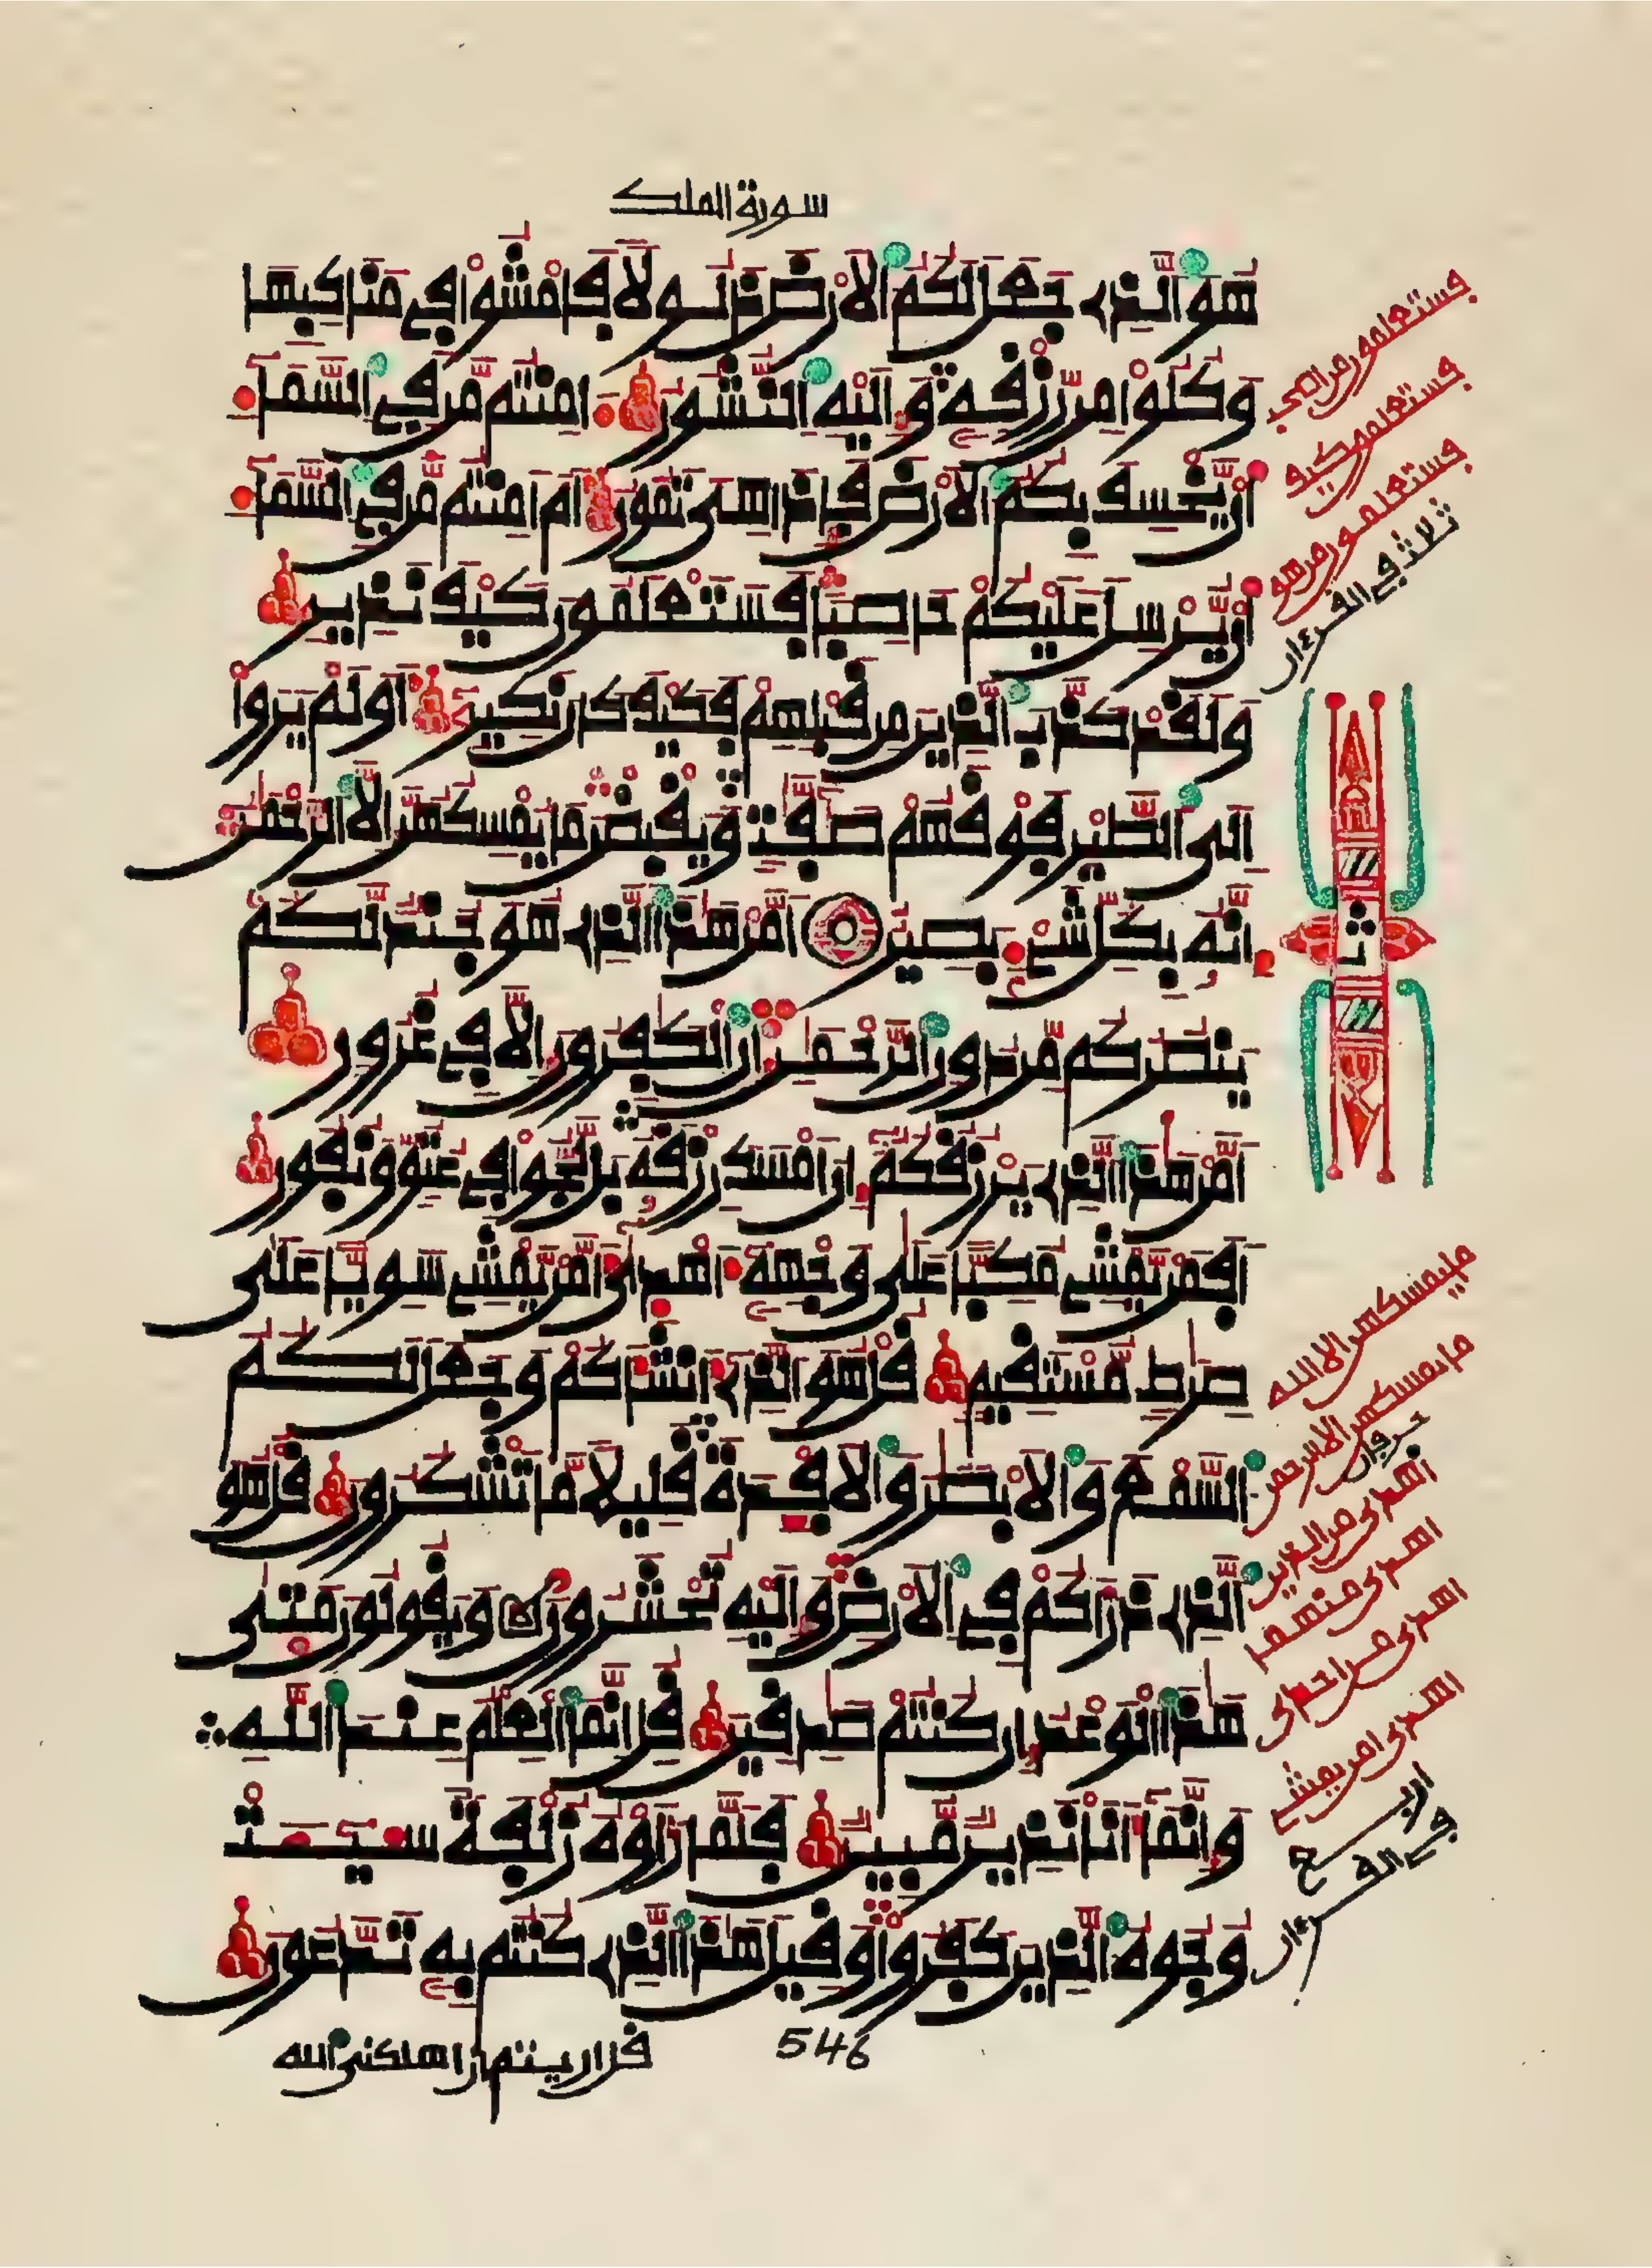 سورة الملك
هو الذے جعل لكم الارض ذلولا فامشوا في مناكبها
وكلوا من رزقه واليه النشور امنتم من في السما
ان يخسف بكم الارض فاذا هى تمور ام امنتم من في السما
ان يرسل عليكم حاصبا فستعلمون كيف نذير
ولقد كذب الذين من قبلهم فكيف كان نكير اولم يروا
الى الطير فوقهم صفت ويقبضن ما يمسكهن الا الرحمن
انه بكل شے بصير امن هذا الذے هو جند لكم
ينصركم من دون الرحمن ان الكفرون الا في غرور
امن هذا الذے يرزقكم ان امسك رزقه بل لجوا في عتو ونفور
افمن يمشے مكبا على وجهه اهدى امن يمشے سويا على
صرط مستقيم قل هو الذے انشاكم وجعل لكم
السمع والابصر والافدة قليلا ما تشكرون قل هو
الذے ذراكم في الارض واليه تحشرون ويقولون متى
هذا الوعد ان كنتم صدقين قل انما العلم عند الله
وانما انا نذير مبين فلما راوه زلفة سيت
وجوه الذين كفروا وقيل هذا الذے كنتم به تدعون
546
قل اريتم ان اهلكنى الله
فستعلمون من اصحب
فستعلمون كيف
فستعلمون من هو
ثلاث في القرءان
ثمن
ما يمسكهن الا الله
ما يمسكهن الا الرحمن
حرفان
اهدى من الذين
اهدى منهما
اهدى من احدى
اهدى امن يمشے
اربع
في القرءان